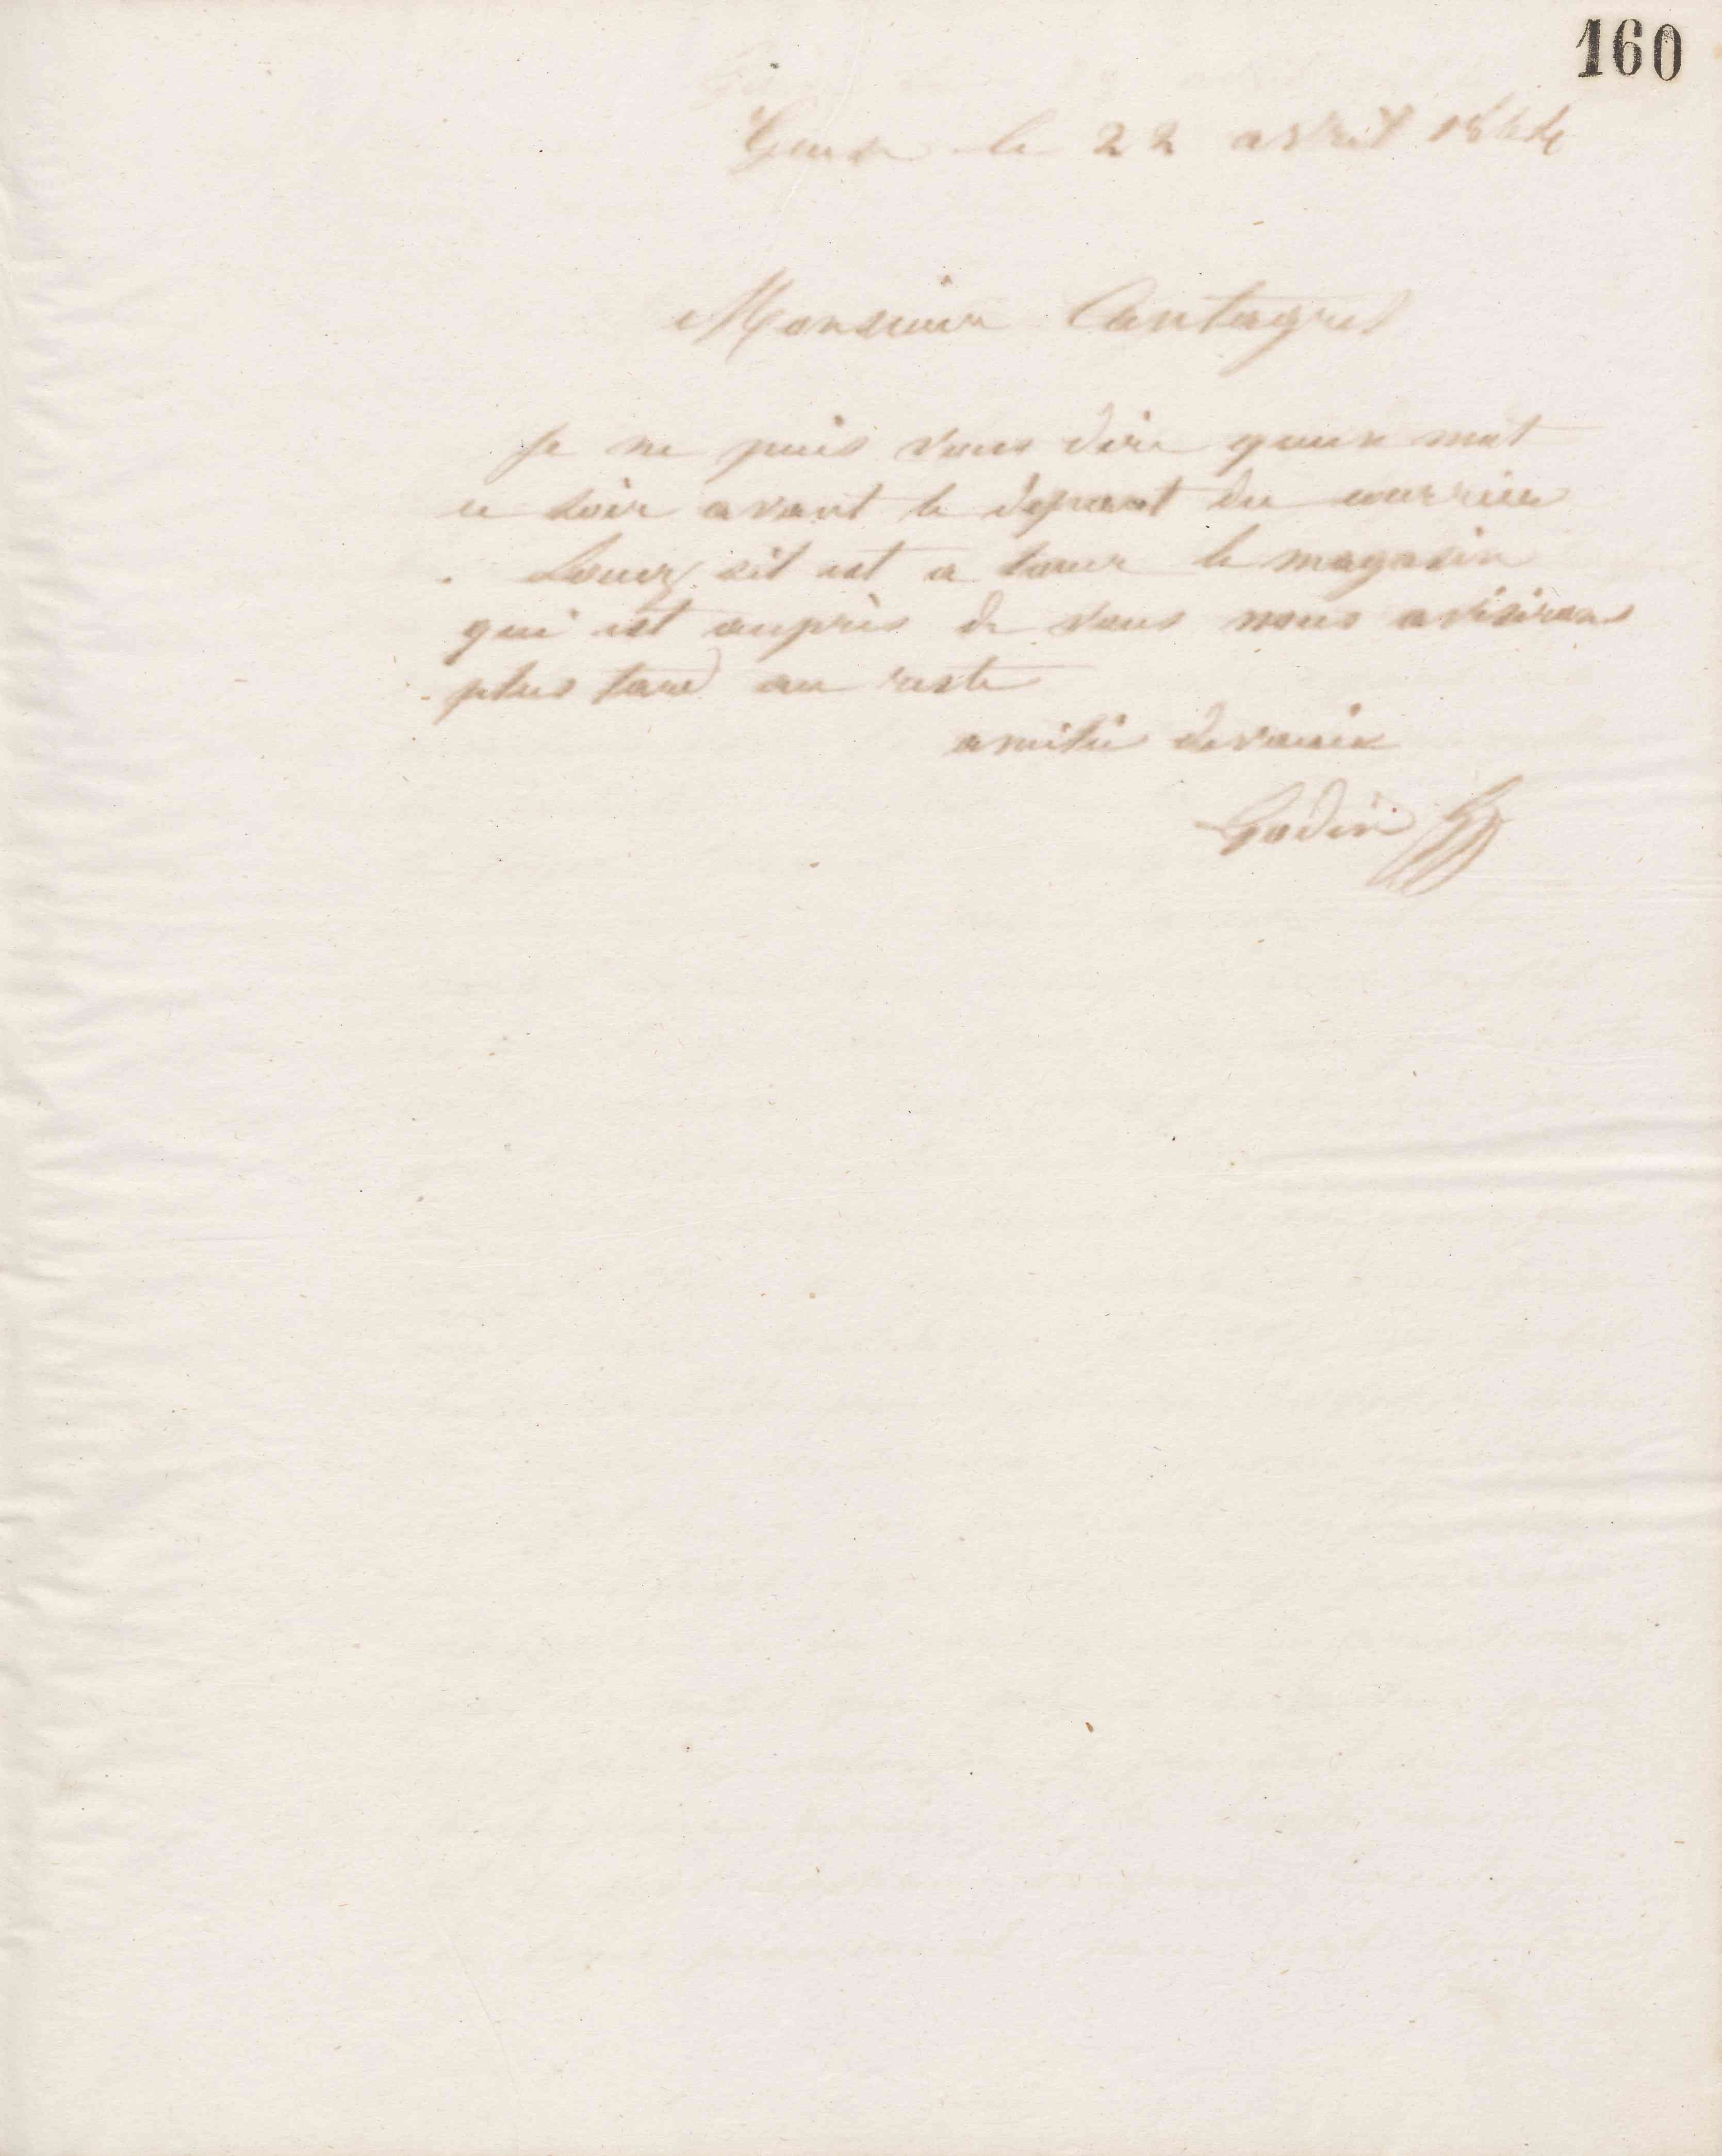 160
Guise le 22 avril 1854
Monsieur Cantagrel
Je ne puis vous dire quun mot
ce soir avant le depart du courrier
Louez sil est a louer le magasin
qui est auprès de vous nous aviserons
plus tard au reste
amitié devouée
Godin